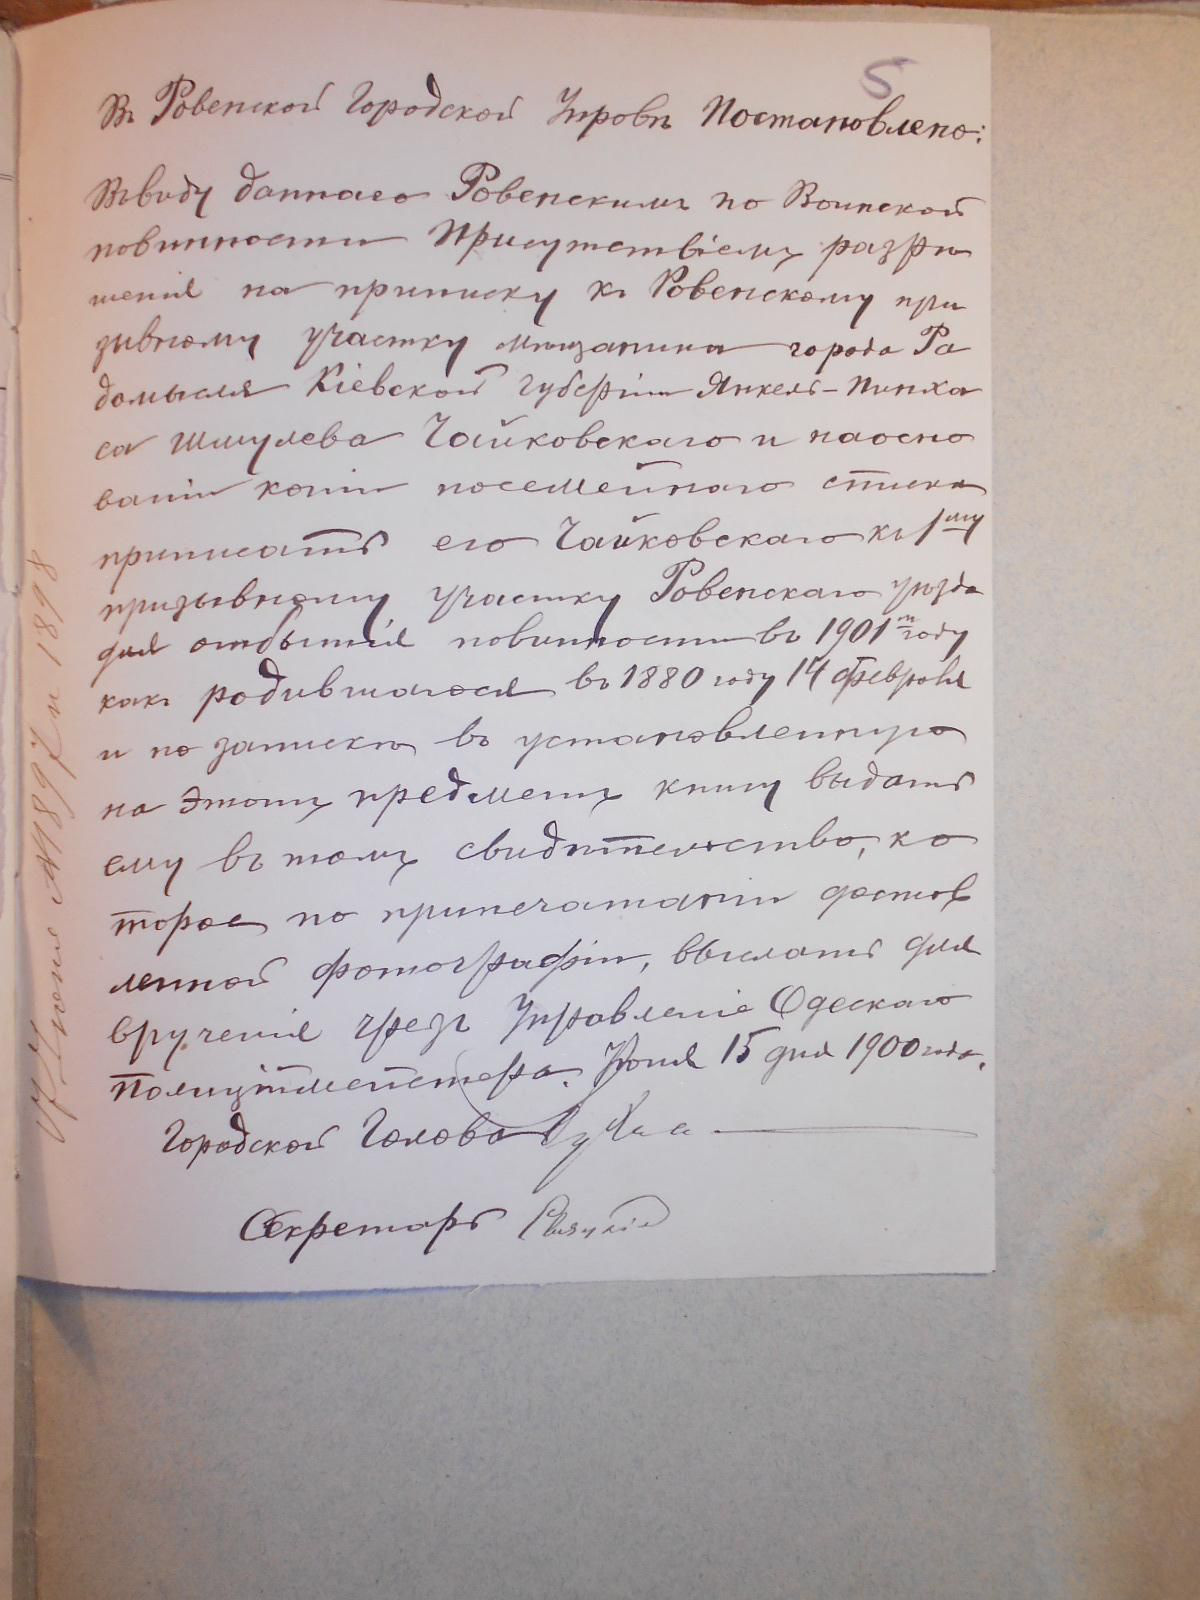 5
Въ Ровенской Городской Управѣ Постановлено:
Въ виду даннаго Ровенскимъ по Воинской
повинности Присутствіемъ разрѣ
шенія на приписку къ Ровенскому при
зывному участку мѣщанина города Ра
домысля Кіевской Губерніи Янкель-Пинха
са Шмулева Чайковскаго и на осно
ваніи копіи посемейнаго списка
приписать его Чайковскаго къ 1му
призывному участку Ровенскаго уѣзда
для отбытія повинности въ 1901 м году
какъ родившагося въ 1880 году 14 февраля
и по запискѣ въ установленную
на этотъ предметъ книгу выдать
ему въ томъ свидѣтельство, ко
торое по припечатаніи достав
ленной фотографіи, выслать для
врученія чрезъ Управленіе Одескаго
Полицiймейстера. Іюня 15 дня 1900 года.
Городской Голова
Секретарь
№ 1897 и 1898